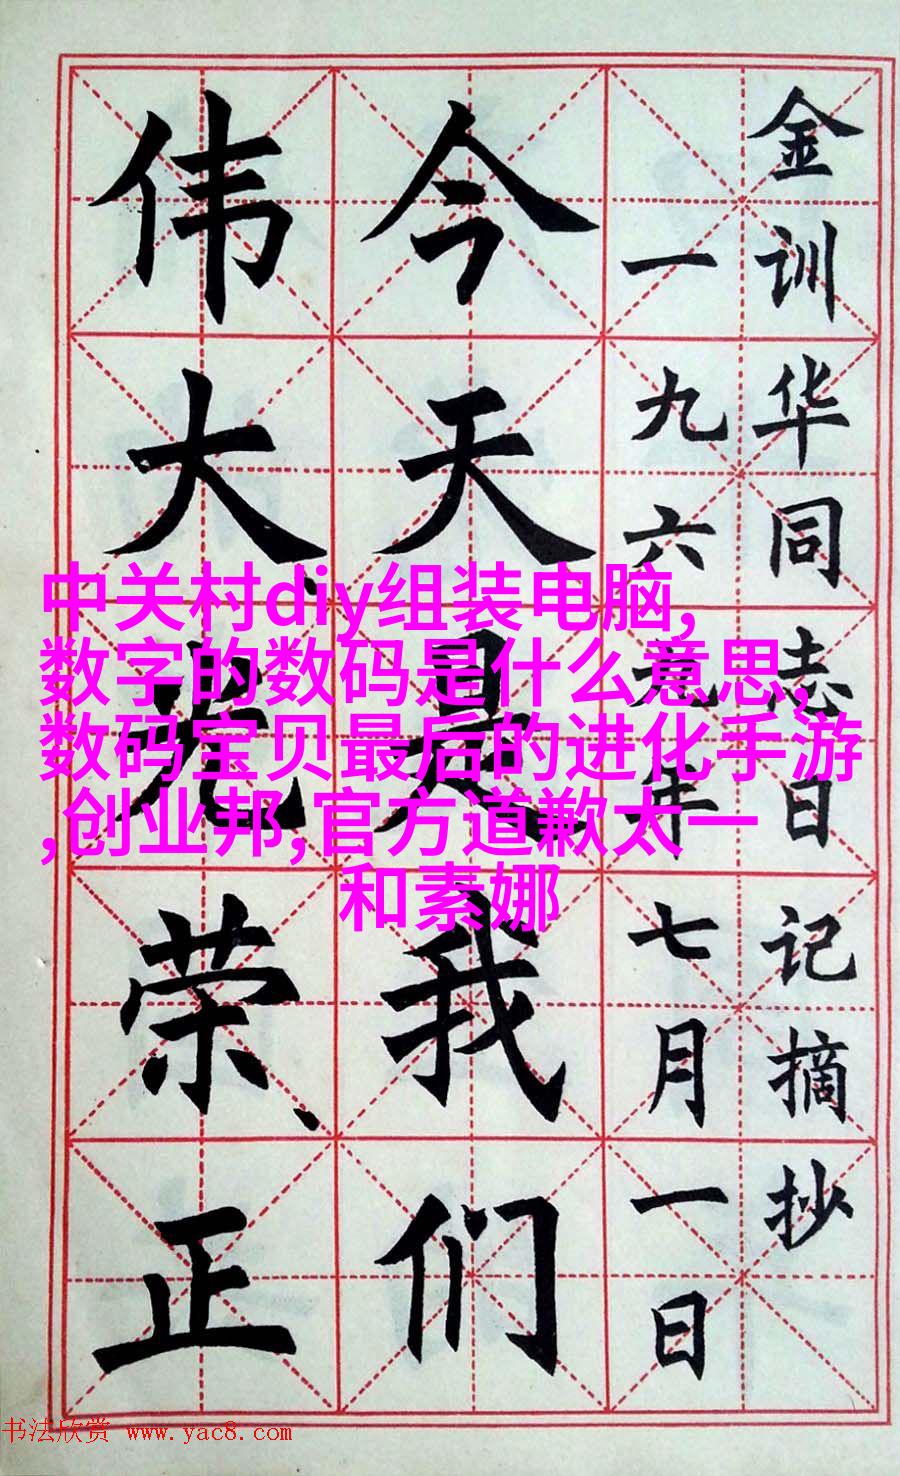 金训华同志日记摘抄
一九六九年七月一日
今天是我们
伟大、光荣、正
中关村diy组装电脑,
数字的数码是什么意思,
数码宝贝最后的进化手游
,创业邦,官方道歉太一
和素娜
书法欣赏 www.yac8.com